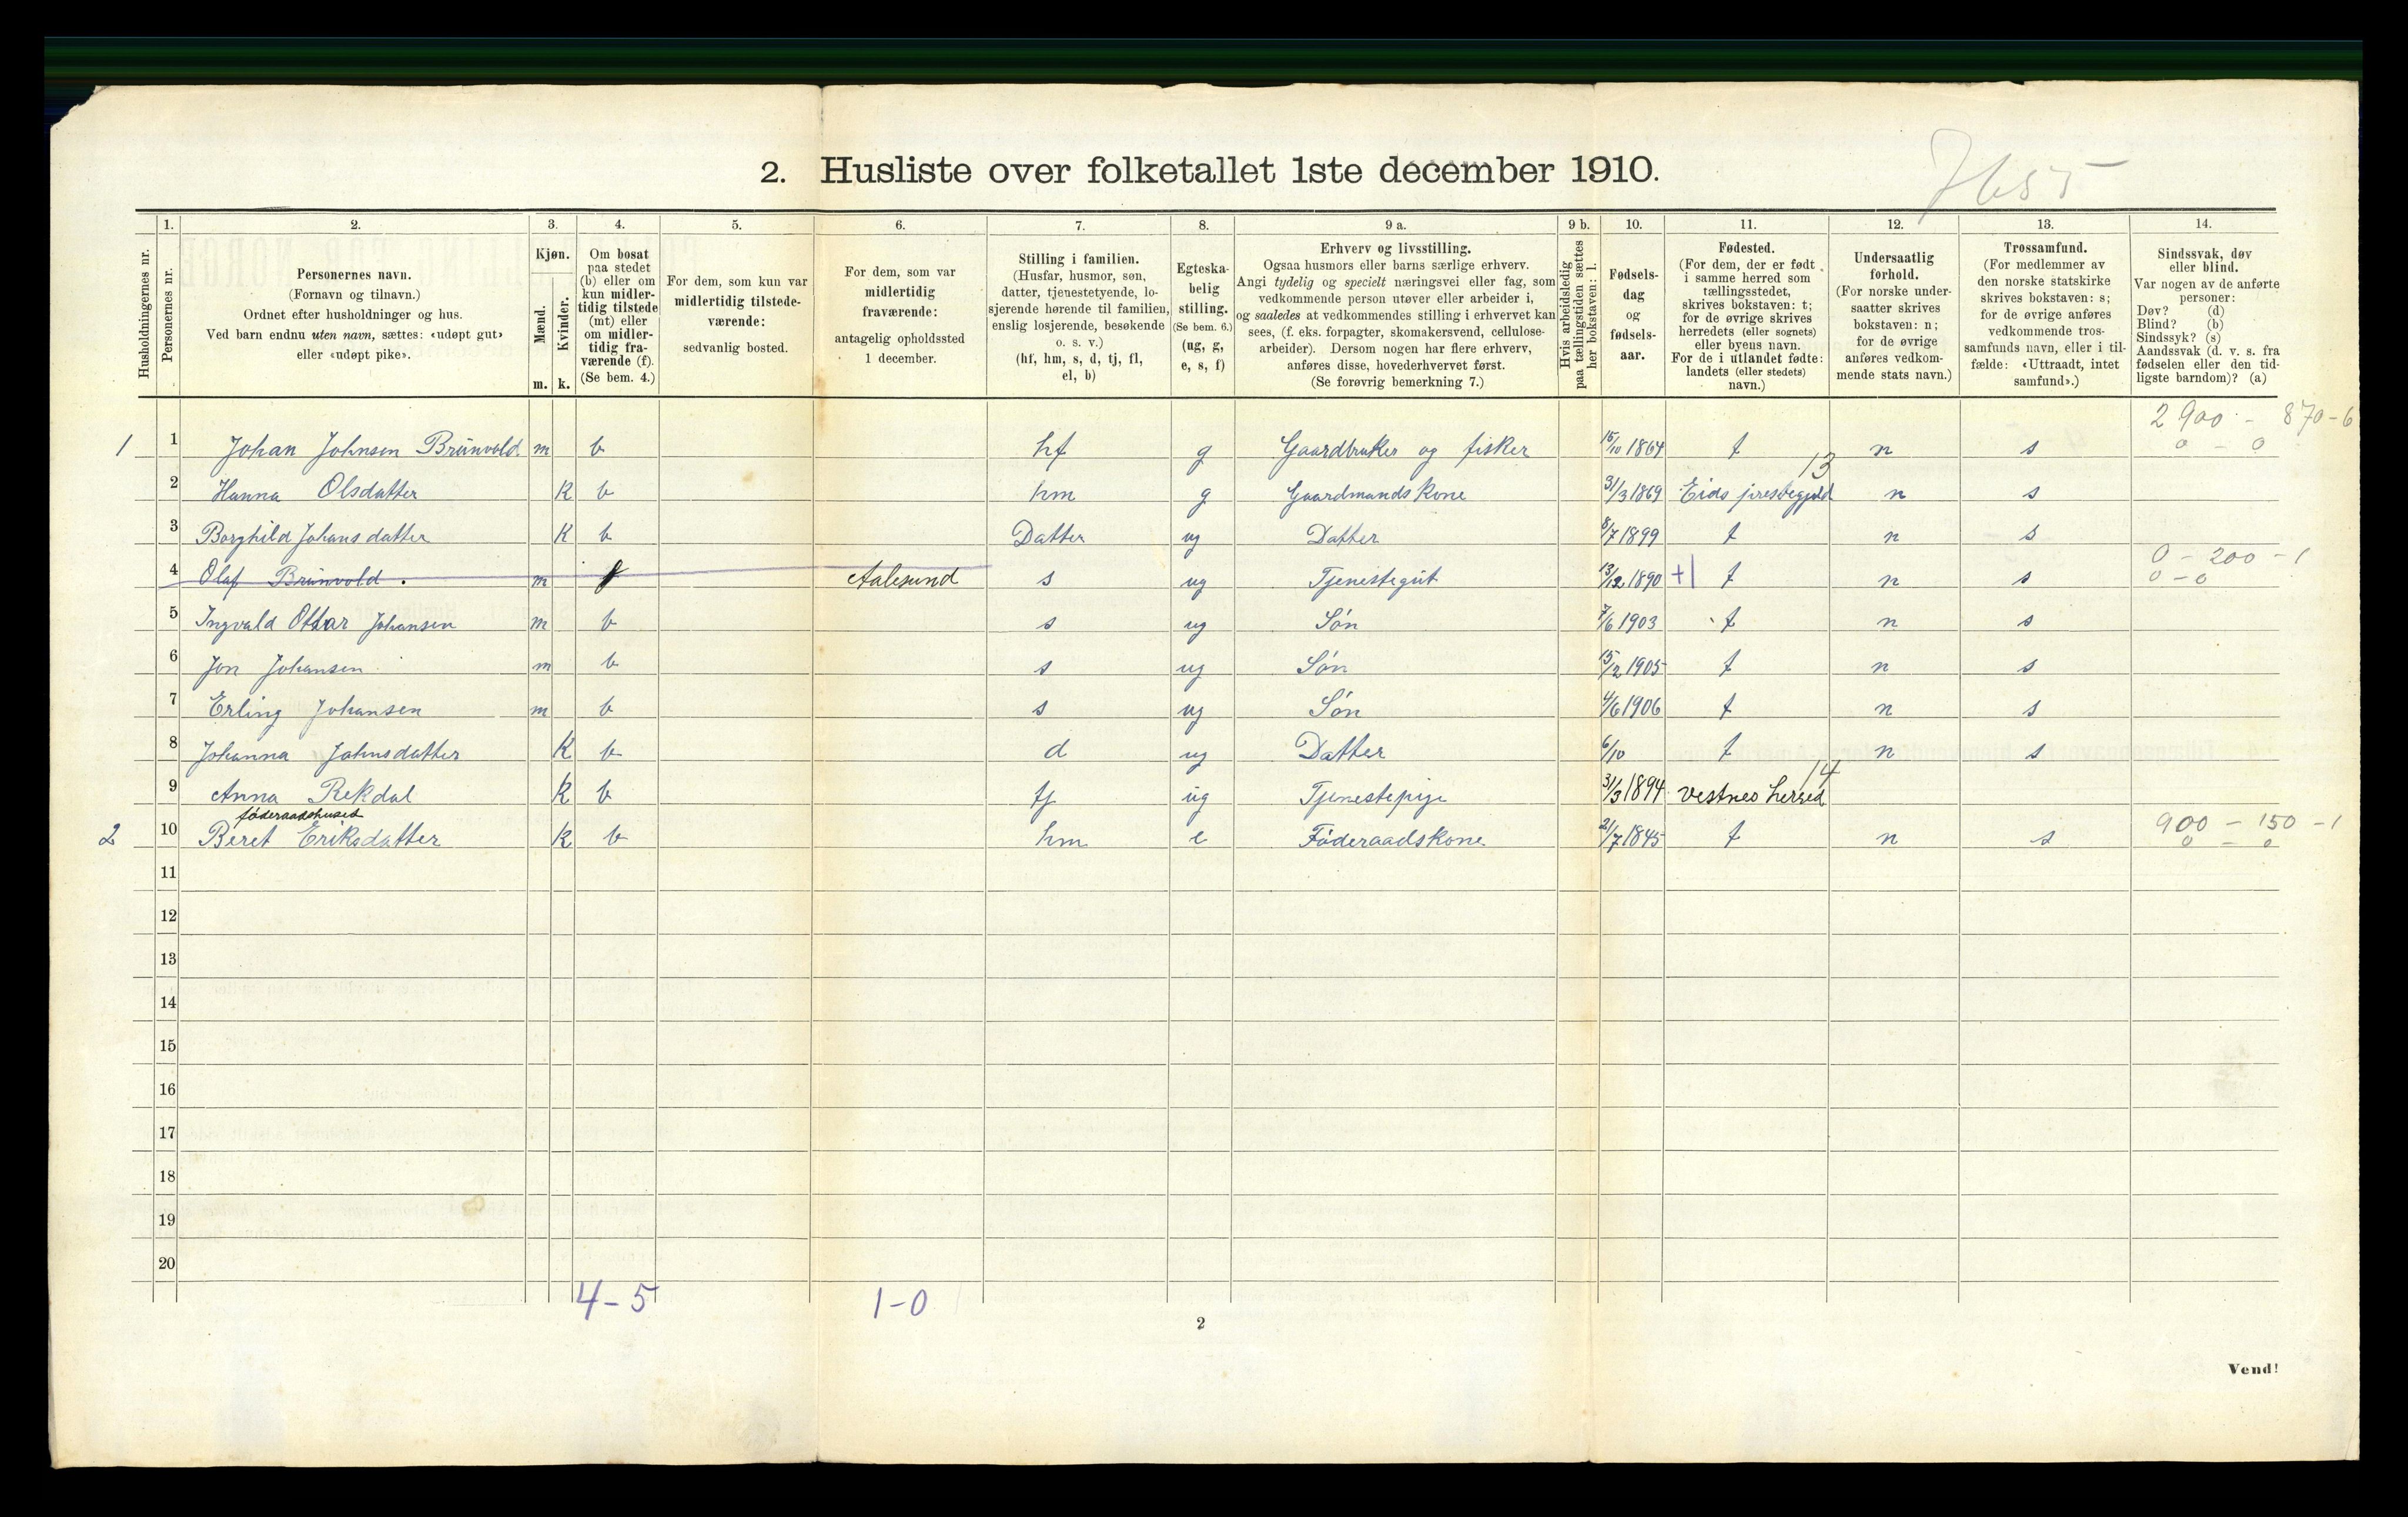 2. Husliste over folketallet 1ste december 1910.
7655
1. 2. 3. 4. 5. 6. 7. 8. 9 a. 9 b. 10. 11. 12. 13. 14.
Husholdningernes nr.
Personernes nr.
Personernes navn.
(Fornavn og tilnavn.)
Ordnet efter husholdninger og hus.
Ved barn endnu uten navn, sættes: «udøpt gut»
eller «udøpt pike».
Kjøn.
Mænd.
Kvinder.
m. k.
Om bosat
paa stedet
(b) eller om
kun midler-
tidig tilstede
(mt) eller
om midler-
tidig fra-
værende (f).
(Se bem. 4.)
For dem, som kun var
midlertidig tilstede-
værende:
sedvanlig bosted.
For dem, som var
midlertidig
fraværende:
antagelig opholdssted
1 december.
Stilling i familien.
(Husfar, husmor, søn,
datter, tjenestetyende, lo-
sjerende hørende til familien,
enslig losjerende, besøkende
o. s. v.)
(hf, hm, s, d, tj, fl,
el, b)
Egteska-
belig
stilling.
(Se bem. 6.)
(ug, g,
e, s, f)
Erhverv og livsstilling.
Ogsaa husmors eller barns særlige erhverv.
Angi tydelig og specielt næringsvei eller fag, som
vedkommende person utøver eller arbeider i,
og saaledes at vedkommendes stilling i erhvervet kan
sees, (f. eks. forpagter, skomakersvend, cellulose-
arbeider). Dersom nogen har flere erhverv,
anføres disse, hovederhvervet først.
(Se forøvrig bemerkning 7.)
Hvis arbeidsledig
paa tællingstiden sættes
her bokstaven: l.
Fødsels-
dag
og
fødsels-
aar.
Fødested.
(For dem, der er født
i samme herred som
tællingsstedet,
skrives bokstaven: t;
for de øvrige skrives
herredets (eller sognets)
eller byens navn.
For de i utlandet fødte:
landets (eller stedets)
navn.)
Undersaatlig
forhold.
(For norske under-
saatter skrives
bokstaven: n;
for de øvrige
anføres vedkom-
mende stats navn.)
Trossamfund.
(For medlemmer av
den norske statskirke
skrives bokstaven: s;
for de øvrige anføres
vedkommende tros-
samfunds navn, eller i til-
fælde: «Uttraadt, intet
samfund».)
Sindssvak, døv
eller blind.
Var nogen av de anførte
personer:
Døv? (d)
Blind? (b)
Sindssyk? (s)
Aandssvak (d. v. s. fra
fødselen eller den tid-
ligste barndom)? (a)
2900 - 870-6
1 1 Johan Johnsen Brünvold. m b hf g Gaardbruker og fisker 15/10 1864 t n s 0 - 0
13
2 Hanna Olsdatter k b hm g Gaardmandskone 31/3 1869 Eids prestegjeld n s
3 Borghild Johansdatter k b Datter ug Datter 8/7 1899 t n s
0 - 200 - 1
4 Olaf Brünvold. m f Aalesund s ug Tjenestegut 13/12 1890 +1 t n s 0-0
5 Ingvald Ottar Johansen m b s ug Søn 7/6 1903 t n s
6 Jon Johansen m b s ug Søn 15/2 1905 t n s
7 Erling Johansen m b s ug Søn 4/6 1906 t n s
8 Johanna Johnsdatter k b d ug Datter 6/10 t n s
14
9 Anna Rekdal k b tj ug Tjenestepige 31/3 1894 Vestnes herred
föderaadshuset
900 - 150 - 1
2 10 Beret Eriksdatter k b hm e Föderaadskone 21/7 1845 t n s 0 - 0
11
12
13
14
15
16
17
18
19
20
4-5 1-0
2
Vend!